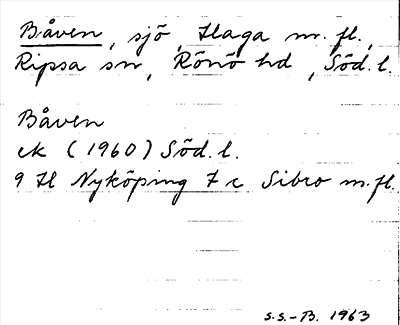 Båven, sjö, Haga m.fl.,
Ripsa sn, Rönö hd, Söd.l.
Båven
ek (1960) Söd.l.
9 H Nyköping 7 c Sibro m.fl.
S.S.-B. 1963